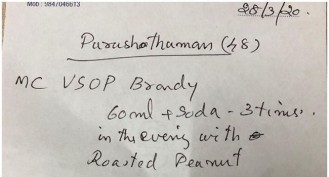 Mob: 9847046613
28/3/20.
Purushothaman (48)
MC VSOP Brandy
60ml + Soda - 3 times.
in the evening with
Roasted Peanut